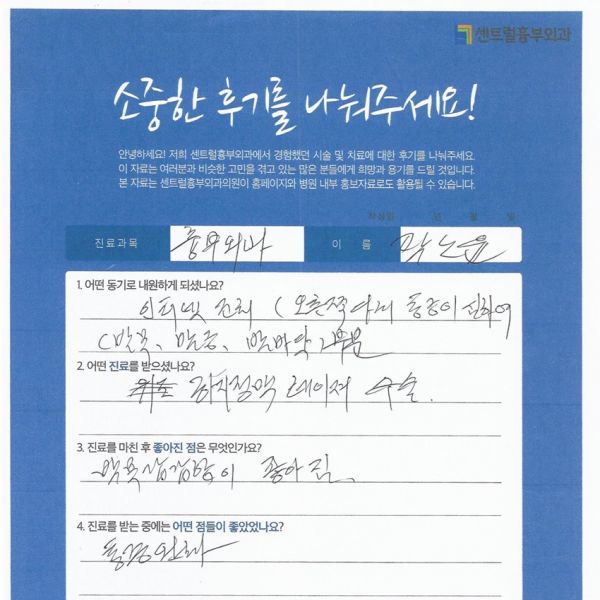 센트럴흉부외과
소중한 후기를 나눠주세요!
안녕하세요! 저희 센트럴흉부외과에서 경험했던 시술 및 치료에 대한 후기를 나눠주세요.
이 자료는 여러분과 비슷한 고민을 겪고 있는 많은 분들에게 희망과 용기를 드릴 것입니다.
본 자료는 센트럴흉부외과의원이 홈페이지와 병원 내부 홍보자료로도 활용될 수 있습니다.
작성일 년 월 일
진료과목 흉부외과 이 름
1. 어떤 동기로 내원하게 되셨나요?
인터넷 조회 ( 오른쪽 다리 통증이 심하여
( 발목, 발등, 발바닥 부분
2. 어떤 진료를 받으셨나요?
하지정맥 레이져 수술.
3. 진료를 마친 후 좋아진 점은 무엇인가요?
좋아짐.
4. 진료를 받는 중에는 어떤 점들이 좋았었나요?
통증완화